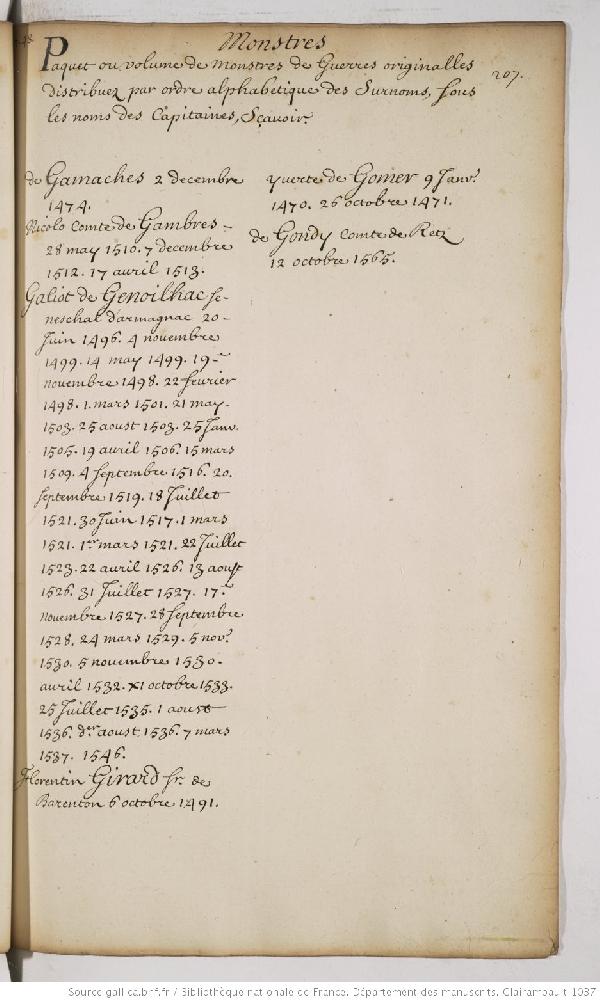 Monstres
207.
Paquet ou volume de monstres de Guerres originalles
distribuez par ordre alphabetique des Surnoms, sous
les noms des Capitaines, Sçavoir.
de Gamaches 2 decembre
1474.
Nicolo Comte de Gambres
28 may 1510. 7 decembre
1512. 17 avril 1513.
Galiot de Genoilhac se-
neschal d'armagnac 20
Juin 1496. 4 novembre
1499. 14 may 1499. 19
novembre 1498. 22 fevrier
1498. 1. mars 1501. 21 may
1503. 25 aoust 1503. 25 Janv.
1505. 19 avril 1506. 15 mars
1509. 4 septembre 1516. 20.
septembre 1519. 18 Juillet
1521. 30 Juin 1517. 1 mars
1521. 1er mars 1521. 22 Juillet
1523. 22 avril 1526. 13 aoust
1526. 31 Juillet 1527. 17
novembre 1527. 28 septembre
1528. 24 mars 1529. 5 nov.
1530. 5 novembre 1530.
avril 1532. XI octobre 1533.
25 Juillet 1535. 1 aoust
1536. aoust 1536. 7 mars
1537. 1546.
Florentin Girard sr. de
Barenton 6 octobre 1491.
yuerte de Gomer 9 Janvr.
1470. 26 octobre 1471.
de Gondy Comte de Retz
12 octobre 1565.
Source gallica.bnf.fr / Bibliothèque nationale de France. Département des manuscrits. Clairambault 1037